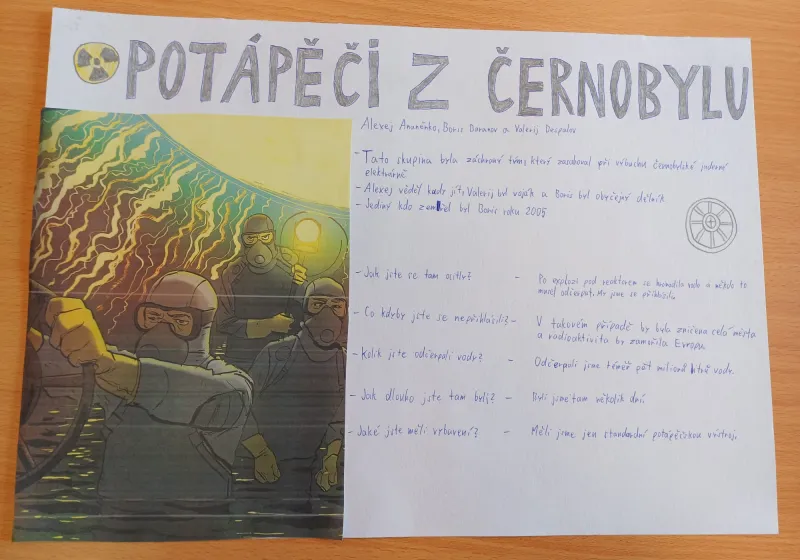 POTÁPĚČI Z ČERNOBYLU
Alexej Ananěnko, Boris Baranov a Valerij Bezpalov
- Tato skupina byla záchranný tým, který zasahoval při výbuchu černobylské jaderné
elektrárně
- Alexej věděl kudy jít, Valerij byl voják a Boris byl obyčejný dělník
- Jediný kdo zemřel byl Boris roku 2005
- Jak jste se tam ocitly? - Po explozi pod reaktorem se hromadila voda a někdo to
musel odčerpat. My jsme se přihlásili.
- Co kdyby jste se nepřihlásili? - V takovém případě by byla zničena celá města
a radioaktivita by zamořila Evropu.
- Kolik jste odčerpali vody? - Odčerpali jsme téměř pět milionů litrů vody.
- Jak dlouho jste tam byli? - Byli jsme tam několik dní.
- Jaké jste měli vybavení? - Měli jsme jen standardní potápěčskou výstroj.